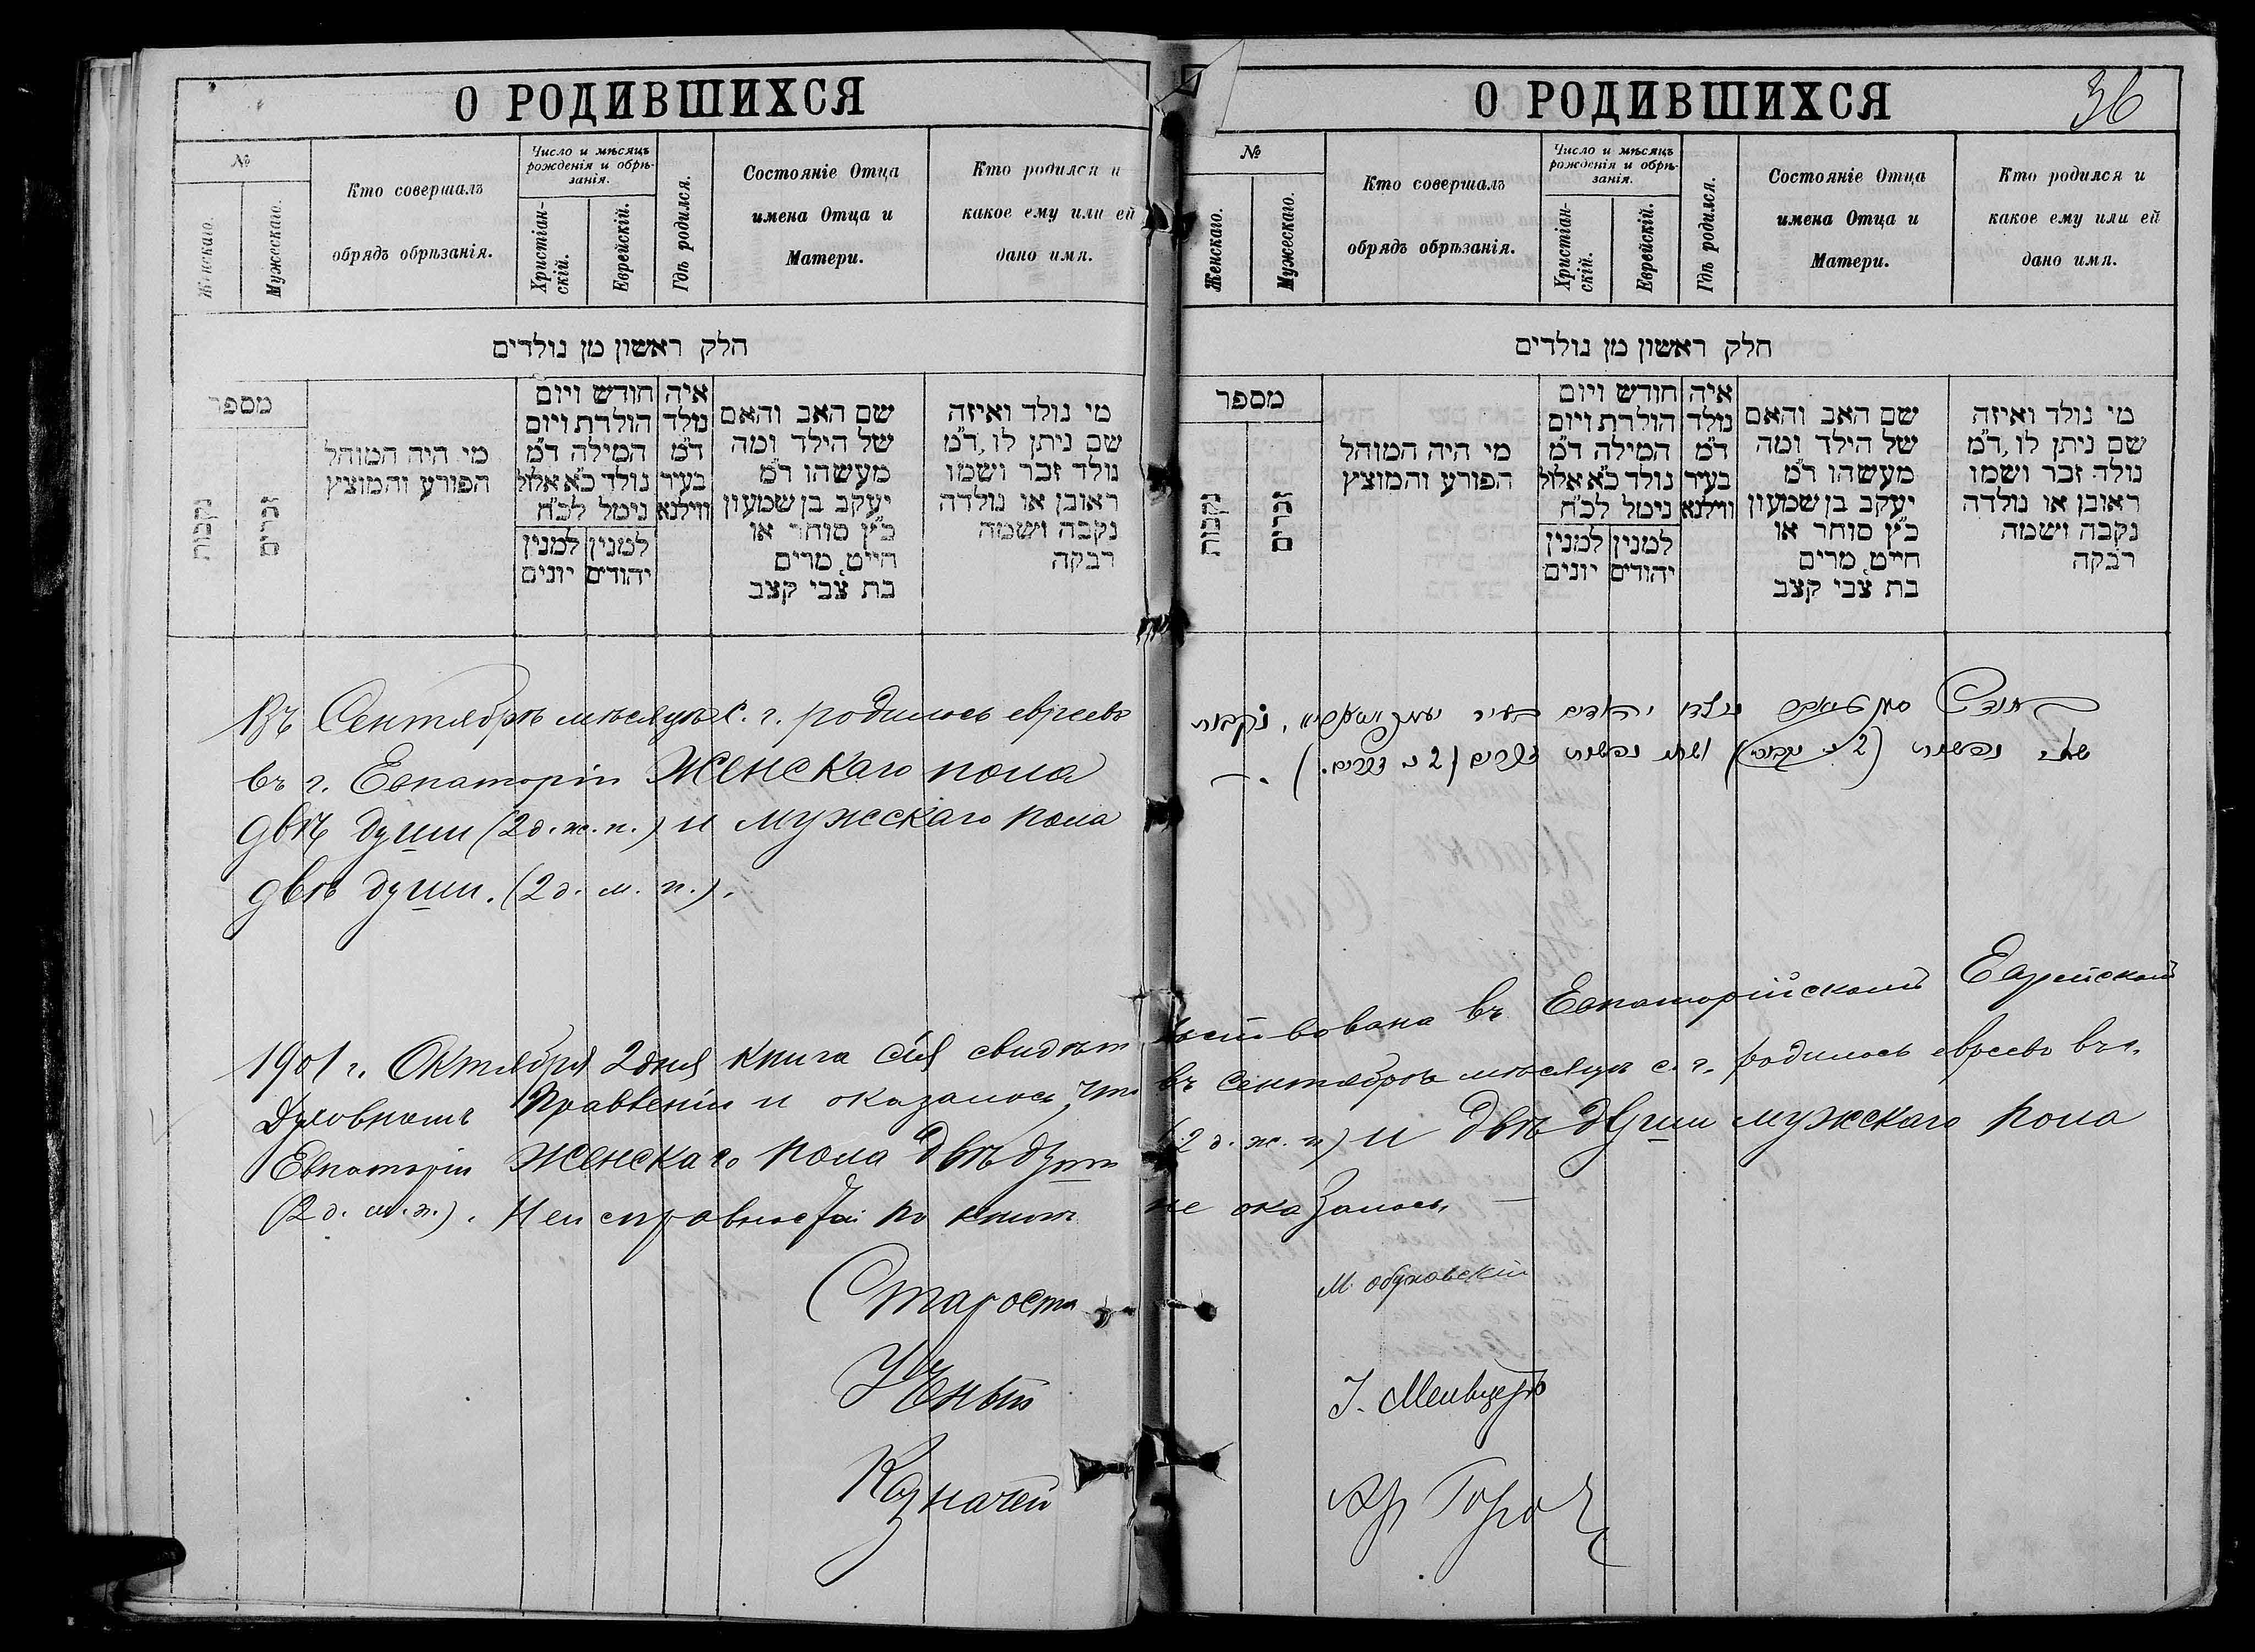 О РОДИВШИХСЯ
№
Женскаго.
Мужескаго.
Кто совершалъ
обрядъ обрѣзанія.
Число и мѣсяцъ
рожденія и обрѣ-
занія.
Христіан-
скій.
Еврейскій.
Гдѣ родился.
Состояніе Отца
имена Отца и
Матери.
Кто родился и
какое ему или ей
дано имя.
חלק ראשון מן נולדים
מספר
נקבות
זכרים
מי היה המוהל
הפורע והמוצץ
חודש ויום
הולדת ויום
המילה ד״מ
נולד כ״א אלול
נימל לכ״ח
למנין
יהודים
למנין
יונים
איה
נולד
ד״מ
בעיר
ווילנא
שם האב והאם
של הילד ומה
מעשהו ד״מ
יעקב בן שמעון
כ״ץ סוחר או
חייט, מרים
בת צבי קצב
מי נולד ואיזה
שם ניתן לו, ד״מ
נולד זכר ושמו
ראובן או נולדה
נקבה ושמה
רבקה
Въ Сентябрѣ мѣсяцѣ с. г. родилось евреевъ
въ г. Евпаторіи Женскаго пола
двѣ души (2 д. ж. п.) и мужскаго пола
двѣ души. (2 д. м. п.).
О РОДИВШИХСЯ
36
№
Женскаго.
Мужескаго.
Кто совершалъ
обрядъ обрѣзанія.
Число и мѣсяцъ
рожденія и обрѣ-
занія.
Христіан-
скій.
Еврейскій.
Гдѣ родился.
Состояніе Отца
имена Отца и
Матери.
Кто родился и
какое ему или ей
дано имя.
חלק ראשון מן נולדים
מספר
נקבות
זכרים
מי היה המוהל
הפורע והמוצץ
חודש ויום
הולדת ויום
המילה ד״מ
נולד כ״א אלול
נימל לכ״ח
למנין
יהודים
למנין
יונים
איה
נולד
ד״מ
בעיר
ווילנא
שם האב והאם
של הילד ומה
מעשהו ד״מ
יעקב בן שמעון
כ״ץ סוחר או
חייט, מרים
בת צבי קצב
מי נולד ואיזה
שם ניתן לו, ד״מ
נולד זכר ושמו
ראובן או נולדה
נקבה ושמה
רבקה
נולדו יהודים בעיר נקבות
שתי נפשות (2 נ׳ נקבות) ושתי נפשות זכרים (2 נ׳ זכרים.)
1901 г. Октября 2 дня книга сія свидѣтельствована въ Евпаторійскомъ Еврейскомъ
Духовномъ Правленіи и оказалось, что въ Сентябрѣ мѣсяцѣ с. г. родилось евреевъ въ г.
Евпаторіи Женскаго пола двѣ души (2 д. ж. п) и двѣ души мужскаго пола
(2 д. м. п.). Неисправностей по книгѣ не оказалось. —
Староста М. Обуховскій
Ученый І.
Казначей